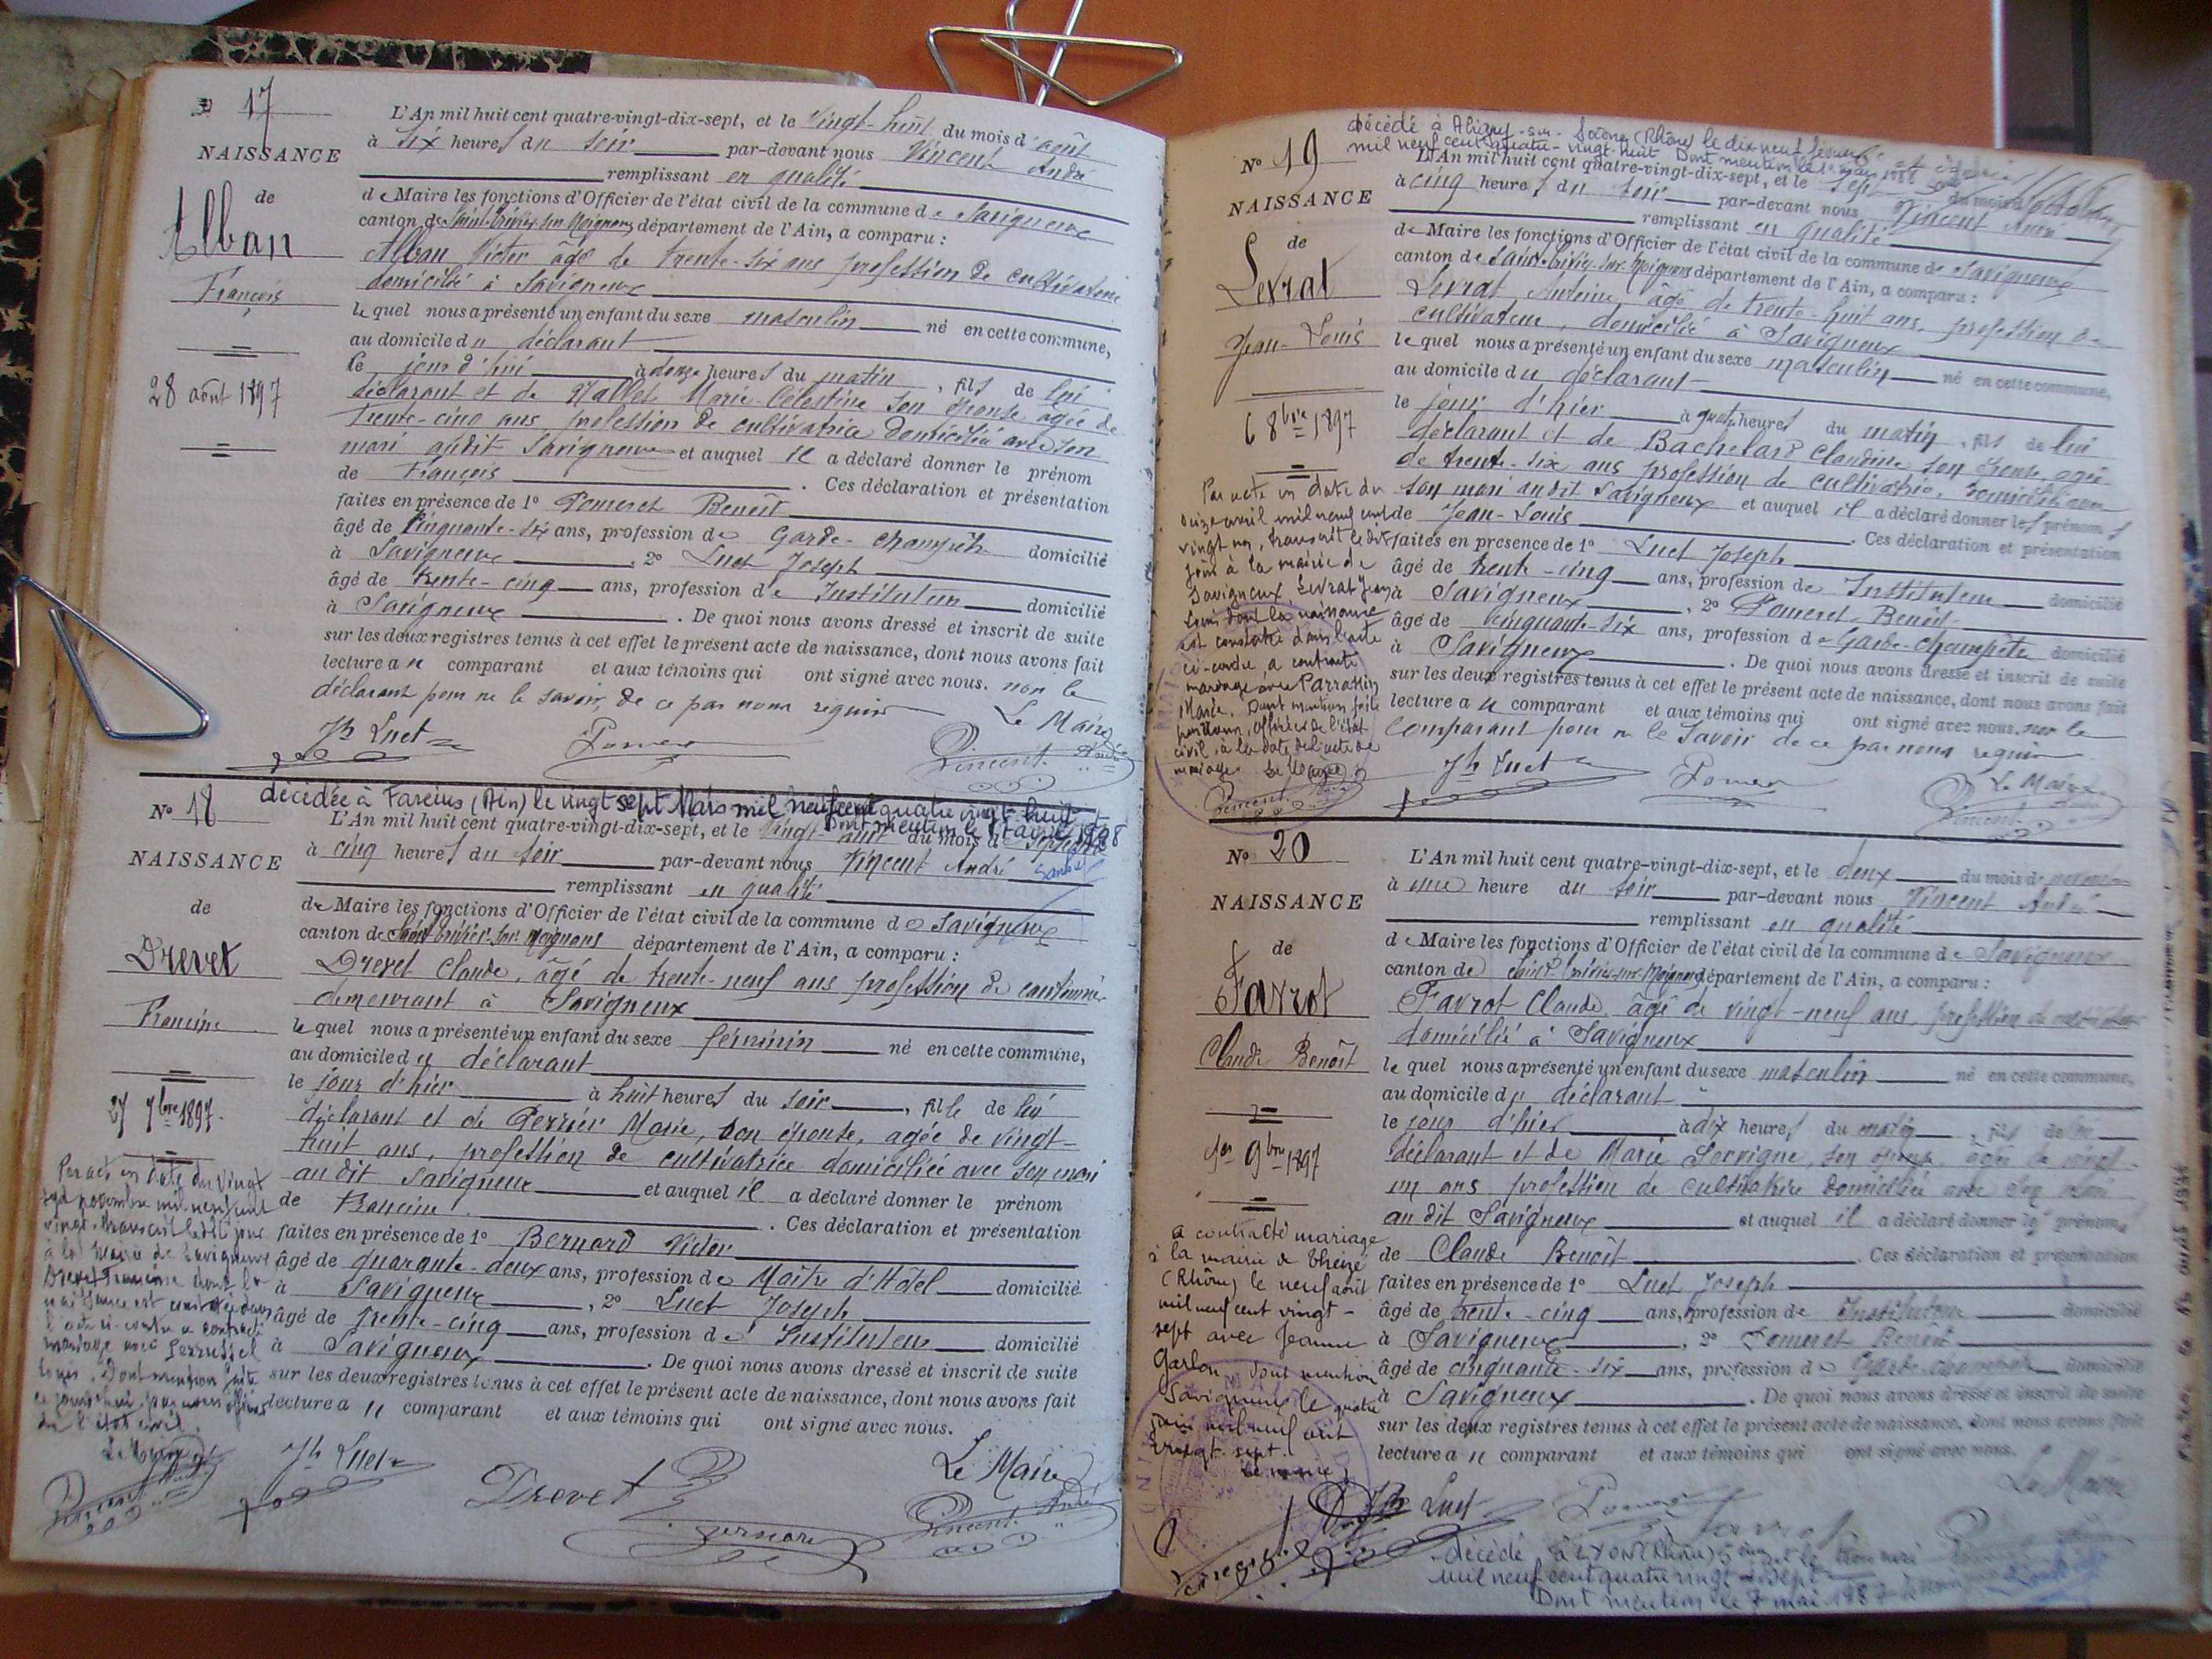 N° 17
NAISSANCE
de
Alban
François
28 août 1897
L'An mil huit cent quatre-vingt-dix-sept, et le vingt-huit du mois d'août
à six heures du soir par-devant nous Vincent André
remplissant en qualité
de Maire les fonctions d'Officier de l'état civil de la commune de Savigneux
canton de Saint-Trivier-sur-Moignans département de l'Ain, a comparu :
Alban Victor âgé de trente-six ans profession de cultivateur
domicilié à Savigneux
lequel nous a présenté un enfant du sexe masculin né en cette commune,
au domicile du déclarant
le jour d'hui à heures du matin, fils de lui
déclarant et de Marie-Célestine son épouse âgée de
trente-cinq ans profession de cultivatrice domiciliée avec son
mari audit Savigneux et auquel il a déclaré donner le prénom
de François . Ces déclaration et présentation
faites en présence de 1° Pomeret Benoît
âgé de cinquante-six ans, profession de Garde-champêtre domicilié
à Savigneux, 2° Luet Joseph
âgé de trente-cinq ans, profession d'Instituteur domicilié
à Savigneux . De quoi nous avons dressé et inscrit de suite
sur les deux registres tenus à cet effet le présent acte de naissance, dont nous avons fait
lecture au comparant et aux témoins qui ont signé avec nous. non le
déclarant pour ne le savoir, de ce par nous requis
Le Maire
Jh Luet Pomeret Vincent André
N° 18
NAISSANCE
de
Drevet
Francine
27 7bre 1897.
décédée à Fareins (Ain) le vingt sept Mars mil neuf cent quatre vingt huit
Dont mention le 1er avril 1988
L'An mil huit cent quatre-vingt-dix-sept, et le vingt-huit du mois de septembre
à cinq heures du soir par-devant nous Vincent André
remplissant en qualité
de Maire les fonctions d'Officier de l'état civil de la commune de Savigneux
canton de Saint-Trivier-sur-Moignans département de l'Ain, a comparu :
Drevet Claude, âgé de trente-neuf ans profession de
demeurant à Savigneux
lequel nous a présenté un enfant du sexe féminin né en cette commune,
au domicile du déclarant
le jour d'hier à huit heures du soir, fille de lui
déclarant et de Perrier Marie, son épouse, agée de vingt-
huit ans, profession de cultivatrice domiciliée avec son mari
au dit Savigneux et auquel il a déclaré donner le prénom
de Francine . Ces déclaration et présentation
faites en présence de 1° Bernard Victor
âgé de quarante-deux ans, profession de Maître d'Hôtel domicilié
à Savigneux, 2° Luet Joseph
âgé de trente-cinq ans, profession d'Instituteur domicilié
à Savigneux . De quoi nous avons dressé et inscrit de suite
sur les deux registres tenus à cet effet le présent acte de naissance, dont nous avons fait
lecture au comparant et aux témoins qui ont signé avec nous.
Par acte en date du vingt
sept novembre mil neuf cent
vingt, transcrit ledit jour
à la Mairie de Savigneux
Drevet Francine dont la
naissance est constatée dans
l'acte ci-contre a contracté
mariage avec Perrussel
Louis. Dont mention faite
ce jourd'hui, par nous officier
de l'état civil.
Le Maire
Jh Luet Drevet Le Maire
Bernard Vincent André
N° 19
NAISSANCE
de
Levrat
Jean-Louis
6 8bre 1897
décédé à Albigny-sur-Saône (Rhône) le dix neuf
mil neuf cent quatre-vingt-huit Dont mention le
L'An mil huit cent quatre-vingt-dix-sept, et le sept du mois d'octobre
à cinq heures du soir par-devant nous Vincent André
remplissant en qualité
de Maire les fonctions d'Officier de l'état civil de la commune de Savigneux
canton de Saint-Trivier-sur-Moignans département de l'Ain, a comparu :
Levrat Antoine âgé de trente-huit ans, profession de
cultivateur, domicilié à Savigneux
lequel nous a présenté un enfant du sexe masculin né en cette commune,
au domicile du déclarant
le jour d'hier à quatre heures du matin, fils de lui
déclarant et de Bachelard Claudine son épouse agée
de trente-six ans profession de cultivatrice, domiciliée avec
son mari audit Savigneux et auquel il a déclaré donner les prénoms
de Jean-Louis . Ces déclaration et présentation
faites en présence de 1° Luet Joseph
âgé de trente-cinq ans, profession de Instituteur domicilié
à Savigneux, 2° Pomeret Benoît
âgé de cinquante-six ans, profession de Garde-champêtre domicilié
à Savigneux . De quoi nous avons dressé et inscrit de suite
sur les deux registres tenus à cet effet le présent acte de naissance, dont nous avons fait
lecture au comparant et aux témoins qui ont signé avec nous, non le
comparant pour ne le savoir de ce par nous requis
Par acte en date du
avril mil neuf cent
vingt un, transcrit ledit
jour à la mairie de
Savigneux, Levrat Jean
Louis dont la naissance
est constatée dans l'acte
ci-contre a contracté
mariage avec
Marie. Dont mention faite
par nous, Officier de l'état
civil, à la date de l'acte de
mariage. Le Maire
Jh Luet Pomeret Le Maire
Vincent André
N° 20
NAISSANCE
de
Favrot
Claude Benoît
1er 9bre 1897
L'An mil huit cent quatre-vingt-dix-sept, et le deux du mois de novembre
à une heure du soir par-devant nous Vincent André
remplissant en qualité
de Maire les fonctions d'Officier de l'état civil de la commune de Savigneux
canton de Saint-Trivier-sur-Moignans département de l'Ain, a comparu :
Favrot Claude âgé de vingt-neuf ans, profession de cultivateur
domicilié à Savigneux
lequel nous a présenté un enfant du sexe masculin né en cette commune,
au domicile du déclarant
le jour d'hier à dix heures du matin, fils de lui
déclarant et de Marie son épouse agée de vingt-
un ans profession de cultivatrice domiciliée avec son mari
au dit Savigneux et auquel il a déclaré donner les prénoms
de Claude Benoît . Ces déclaration et présentation
faites en présence de 1° Luet Joseph
âgé de trente-cinq ans, profession de Instituteur domicilié
à Savigneux, 2° Pomeret Benoît
âgé de cinquante-six ans, profession de Garde-champêtre domicilié
à Savigneux . De quoi nous avons dressé et inscrit de suite
sur les deux registres tenus à cet effet le présent acte de naissance, dont nous avons fait
lecture au comparant et aux témoins qui ont signé avec nous.
a contracté mariage
à la mairie de Theizé
(Rhône) le neuf août
mil neuf cent vingt-
sept avec Jeanne
Garlon dont mention
Savigneux le quatre
mil neuf cent
vingt-sept.
Le maire,
Le Maire
Jh Luet Pomeret Favrot
décédé à LYON (Rhône) 5ème
mil neuf cent quatre vingt-sept
Dont mention le 7 mai 1987